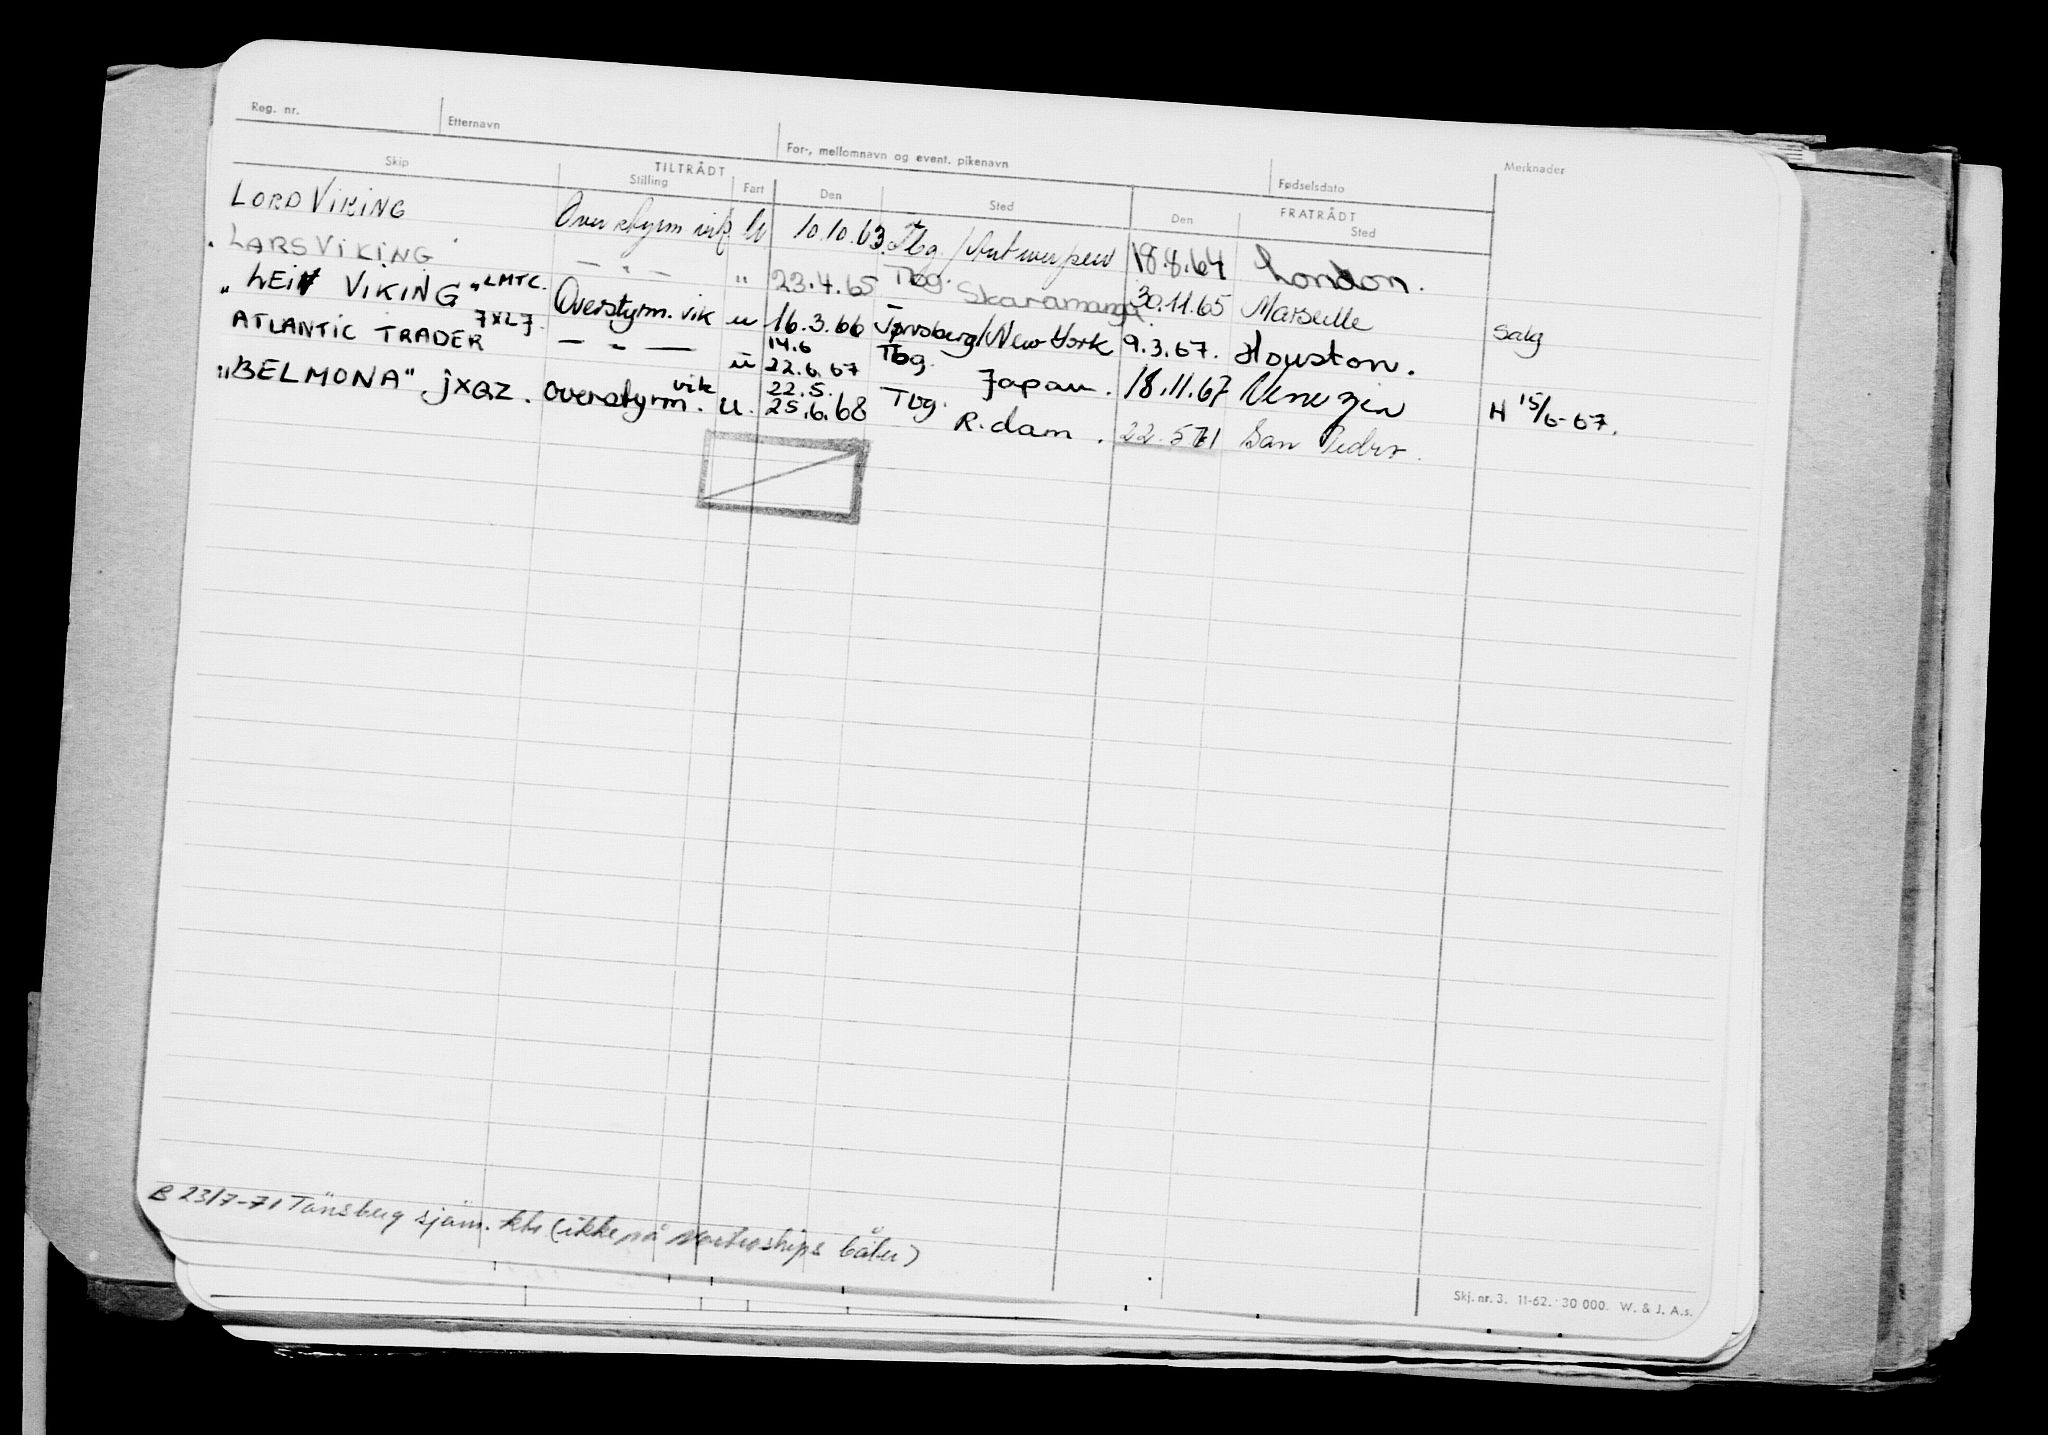 Reg. nr. Etternavn For-, mellomnavn og event. pikenavn Fødselsdato Merknader
Skip TILTRÅDT Stilling Fart Den Sted FRATRÅDT Den Sted
LORD VIKING Overstyrm vik U 10.10.63. Tbg./Antwerpen 18.8.64 London.
LARS VIKING — " — " 23.4.65 Tbg. Skaramanga 30.11.65 Marseille salg
"LEIV VIKING" LMTC. Overstyrm. vik u 16.3.66 Tønsberg/New York 9.3.67. Houston.
ATLANTIC TRADER JXLJ. — " — u 14.6 22.6.67 Tbg. Japan. 18.11.67 Venezia H 15/6-67.
"BELMONA" JXQZ. overstyrm. vik u. 22.5. 25.6.68 Tbg. R.dam. 22.5.71 San Pedro.
B 23/7-71 Tønsberg sjøm. ktr (ikke på Nortraships båter)
Skj. nr. 3. 11-62. 30 000. W. & J. A.s.